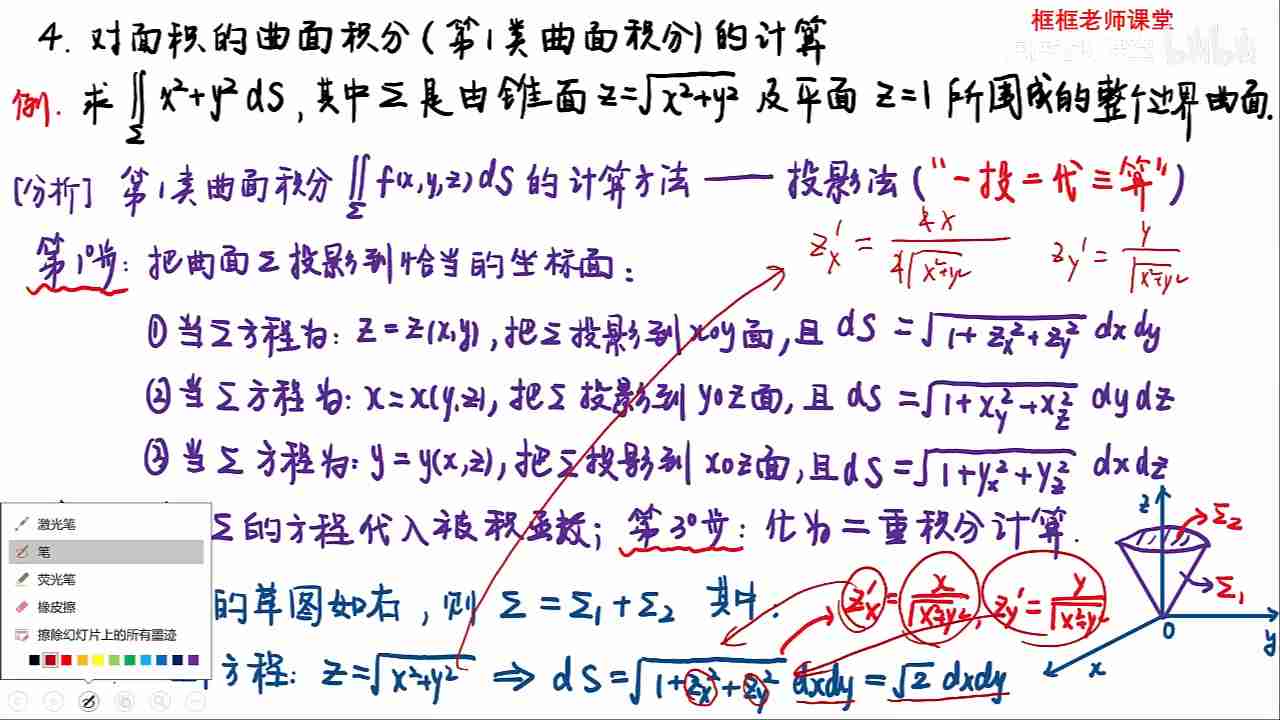 框框老师课堂
4. 对面积的曲面积分(第1类曲面积分)的计算
例. 求 ∬_Σ x²+y² dS, 其中Σ是由锥面 z=√(x²+y²) 及平面 z=1 所围成的整个边界曲面.
[分析] 第1类曲面积分 ∬_Σ f(x,y,z)dS 的计算方法 —— 投影法("一投二代三算")
z'x = 2x/(2√(x²+y²)) z'y = y/√(x²+y²)
第1°步: 把曲面Σ投影到恰当的坐标面:
① 当Σ方程为: z=z(x,y), 把Σ投影到xoy面, 且 dS = √(1+z²x+z²y) dxdy
② 当Σ方程为: x=x(y,z), 把Σ投影到yoz面, 且 dS = √(1+x²y+x²z) dydz
③ 当Σ方程为: y=y(x,z), 把Σ投影到xoz面, 且 dS = √(1+y²x+y²z) dxdz
Σ的方程代入被积函数; 第3°步: 化为二重积分计算.
的草图如右, 则 Σ=Σ₁+Σ₂ 其中:
z'x = x/√(x²+y²), z'y = y/√(x²+y²)
方程: z=√(x²+y²) ⇒ dS=√(1+z²x+z²y) dxdy = √2 dxdy
z
Σ₂
Σ₁
0
y
x
激光笔
笔
荧光笔
橡皮擦
擦除幻灯片上的所有墨迹